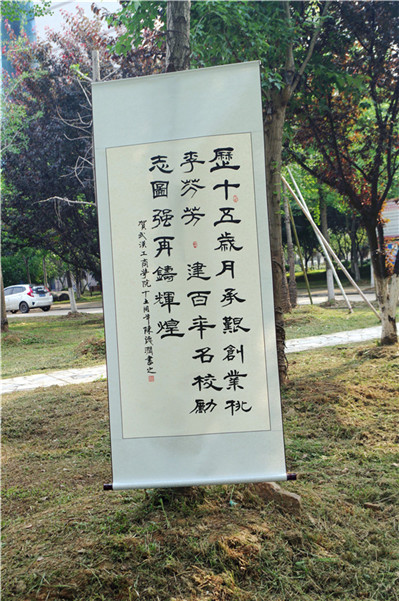 歷十五歲月承艱創業桃
李芬芳 建百年名校勵
志圖强再鑄輝煌
賀武漢工商學院十五周年陳書之